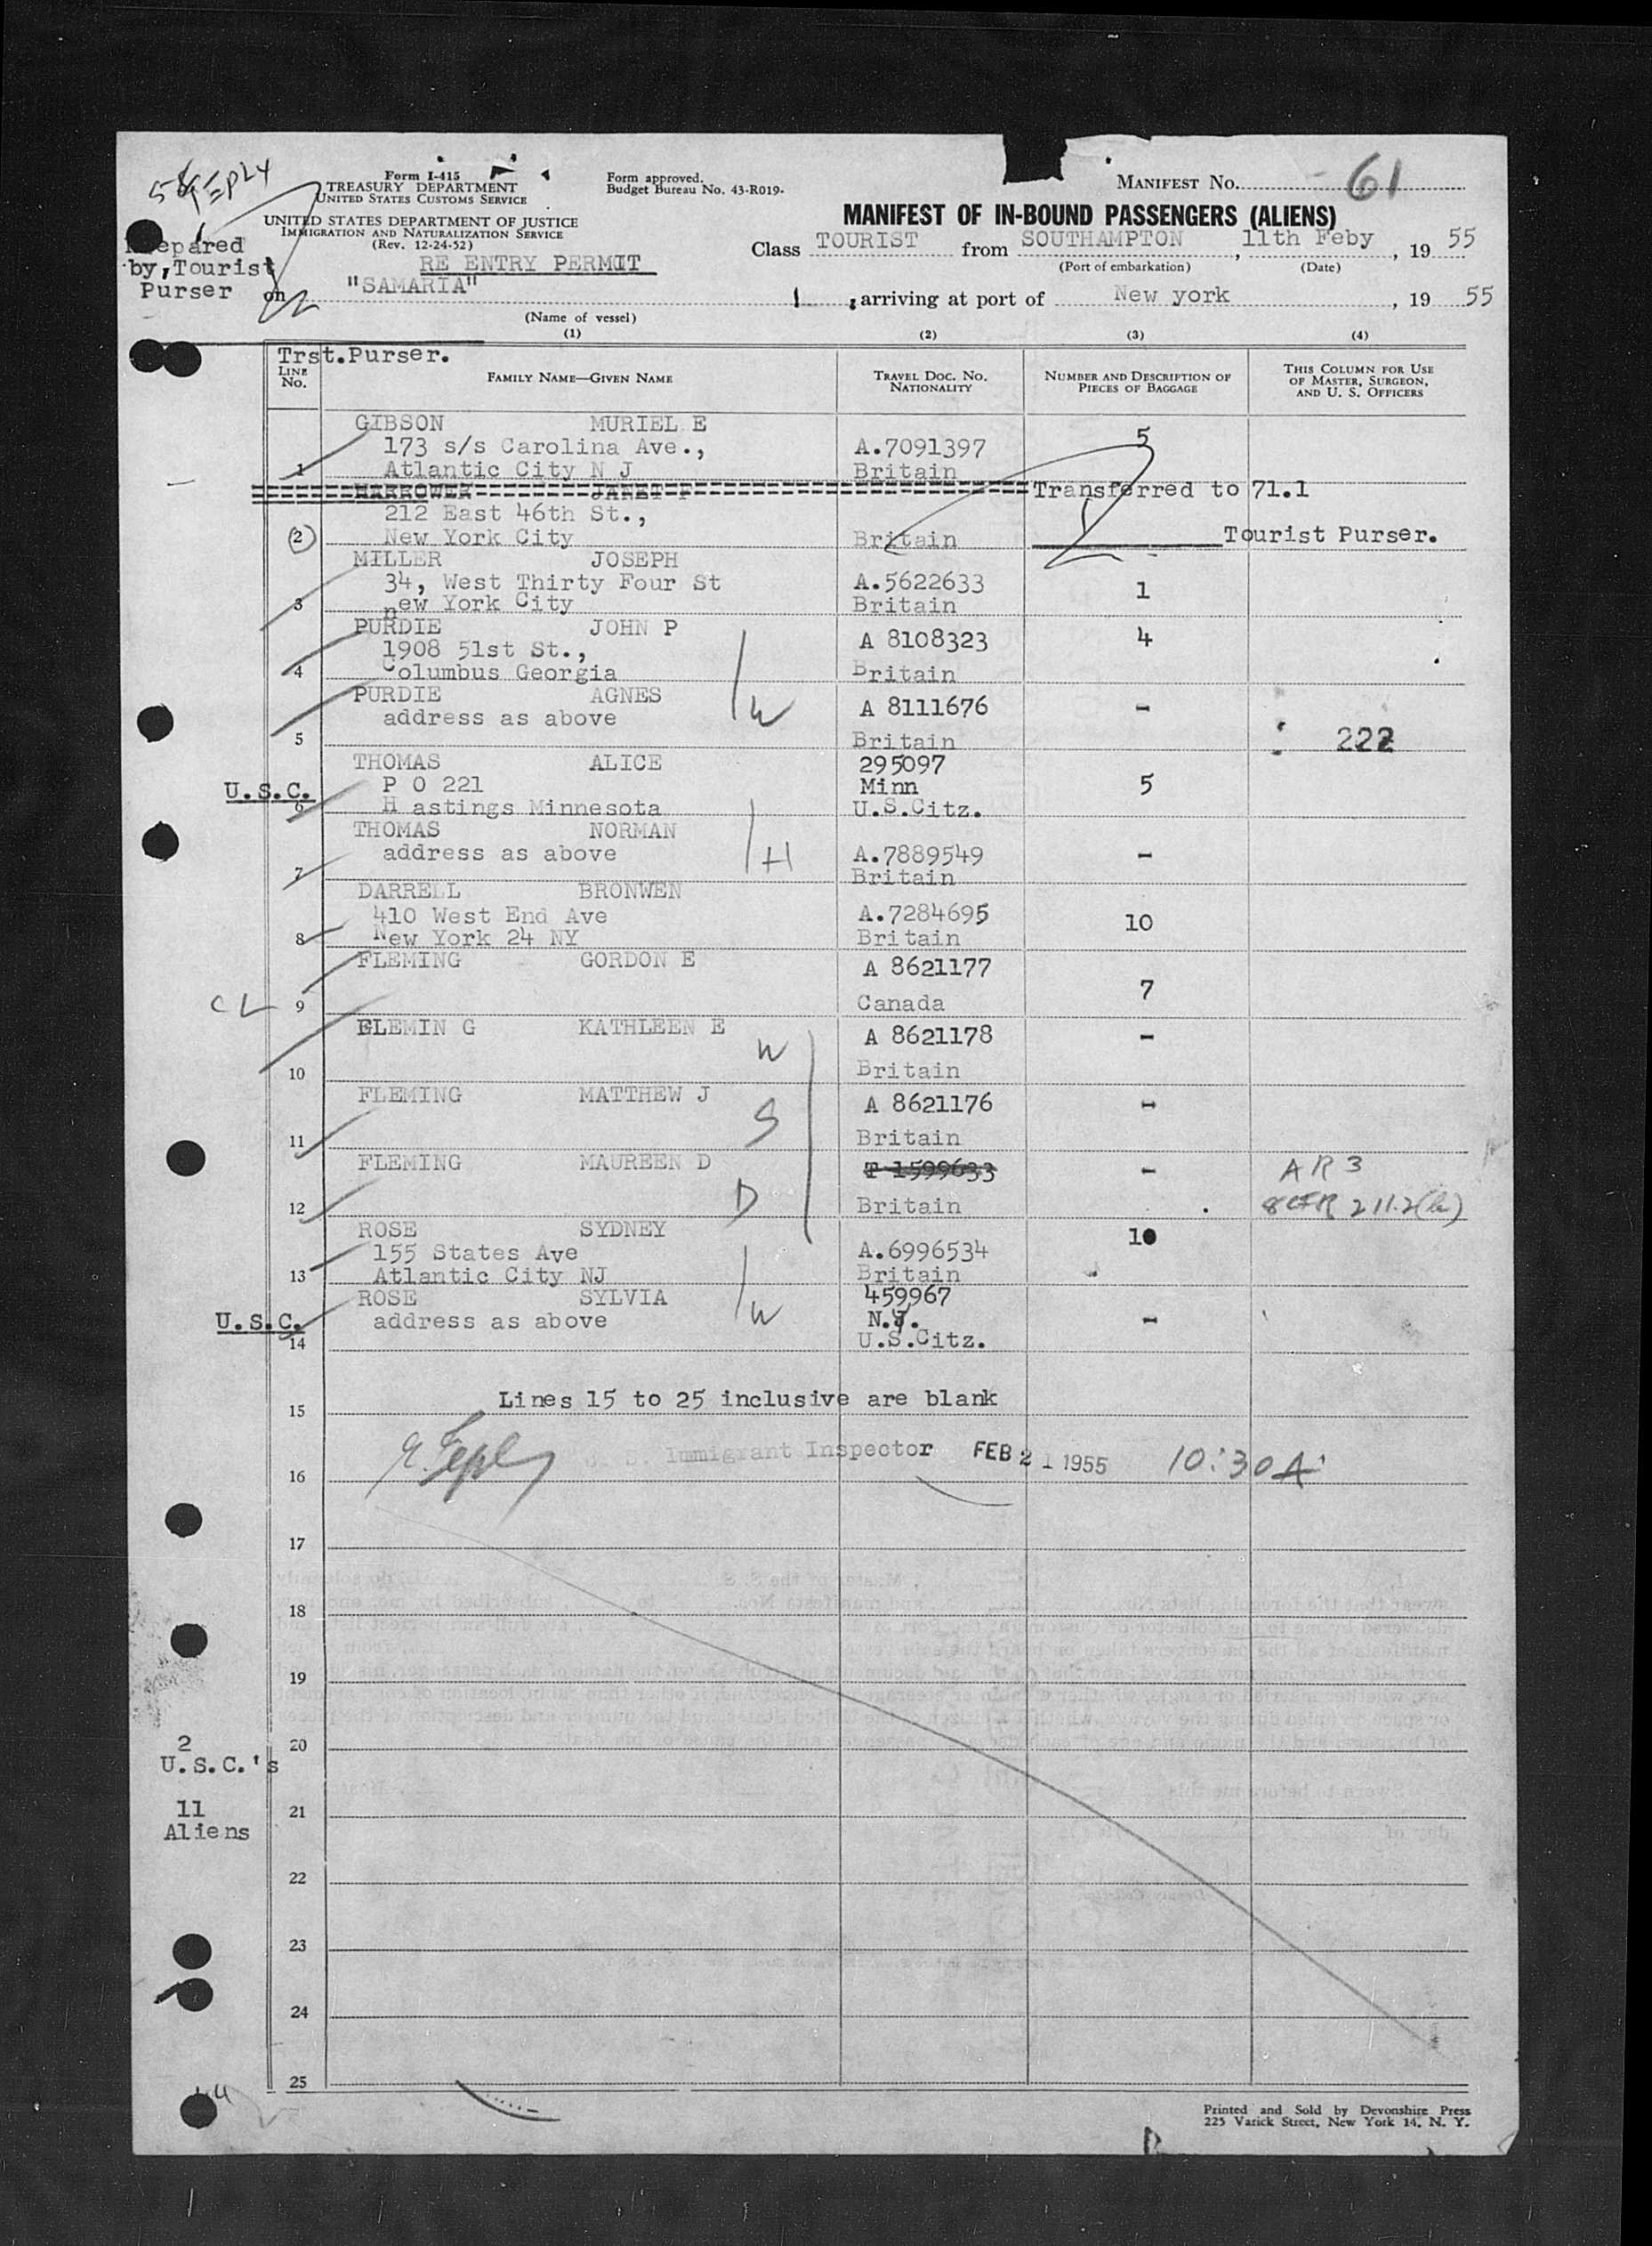 Form I-415
TREASURY DEPARTMENT
UNITED STATES CUSTOMS SERVICE
UNITED STATES DEPARTMENT OF JUSTICE
IMMIGRATION AND NATURALIZATION SERVICE
(Rev. 12-24-52)
RE ENTRY PERMIT
Form approved.
Budget Bureau No. 43-R019-
MANIFEST NO. 61
MANIFEST OF IN-BOUND PASSENGERS (ALIENS)
Class TOURIST from SOUTHAMPTON, 11th Feby, 19 55
(Port of embarkation) (Date)
Prepared
by, Tourist
Purser
on "SAMARIA" , arriving at port of New york, 19 55
(Name of vessel)
(1) (2) (3) (4)
Trst.Purser.
LINE NO. FAMILY NAME—GIVEN NAME TRAVEL DOC. NO. NATIONALITY NUMBER AND DESCRIPTION OF PIECES OF BAGGAGE THIS COLUMN FOR USE OF MASTER, SURGEON, AND U. S. OFFICERS
GIBSON MURIEL E 5
173 s/s Carolina Ave., A.7091397
1 Atlantic City N J Britain
HARROWER JANET P Transferred to 71.1
212 East 46th St.,
2 New York City Britain Tourist Purser.
MILLER JOSEPH
34, West Thirty Four St A.5622633 1
3 new York City Britain
PURDIE JOHN P A 8108323 4
1908 51st St.,
4 Columbus Georgia Britain
PURDIE AGNES A 8111676 -
address as above W
5 Britain 222
THOMAS ALICE 295097
U.S.C. P O 221 Minn 5
6 H astings Minnesota U.S.Citz.
THOMAS NORMAN
address as above H A.7889549 -
7 Britain
DARRELL BRONWEN
410 West End Ave A.7284695 10
8 New York 24 NY Britain
FLEMING GORDON E A 8621177
CL 9 Canada 7
FLEMIN G KATHLEEN E W A 8621178 -
10 Britain
FLEMING MATTHEW J S A 8621176 -
11 Britain
FLEMING MAUREEN D T 1599633 - AR 3
12 D Britain 8 CFR 211.2(b)
ROSE SYDNEY 10
155 States Ave A.6996534
13 Atlantic City NJ Britain
ROSE SYLVIA 459967
U.S.C. address as above W N.J. -
14 U.S.Citz.
Lines 15 to 25 inclusive are blank
15
U. S. Immigrant Inspector FEB 21 1955 10:30A
16
17
18
19
2
U.S.C.'s
20
11
Aliens
21
22
23
24
25
Printed and Sold by Devonshire Press
225 Varick Street, New York 14, N. Y.